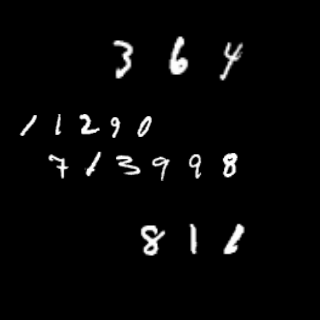 364
11290
713998
811